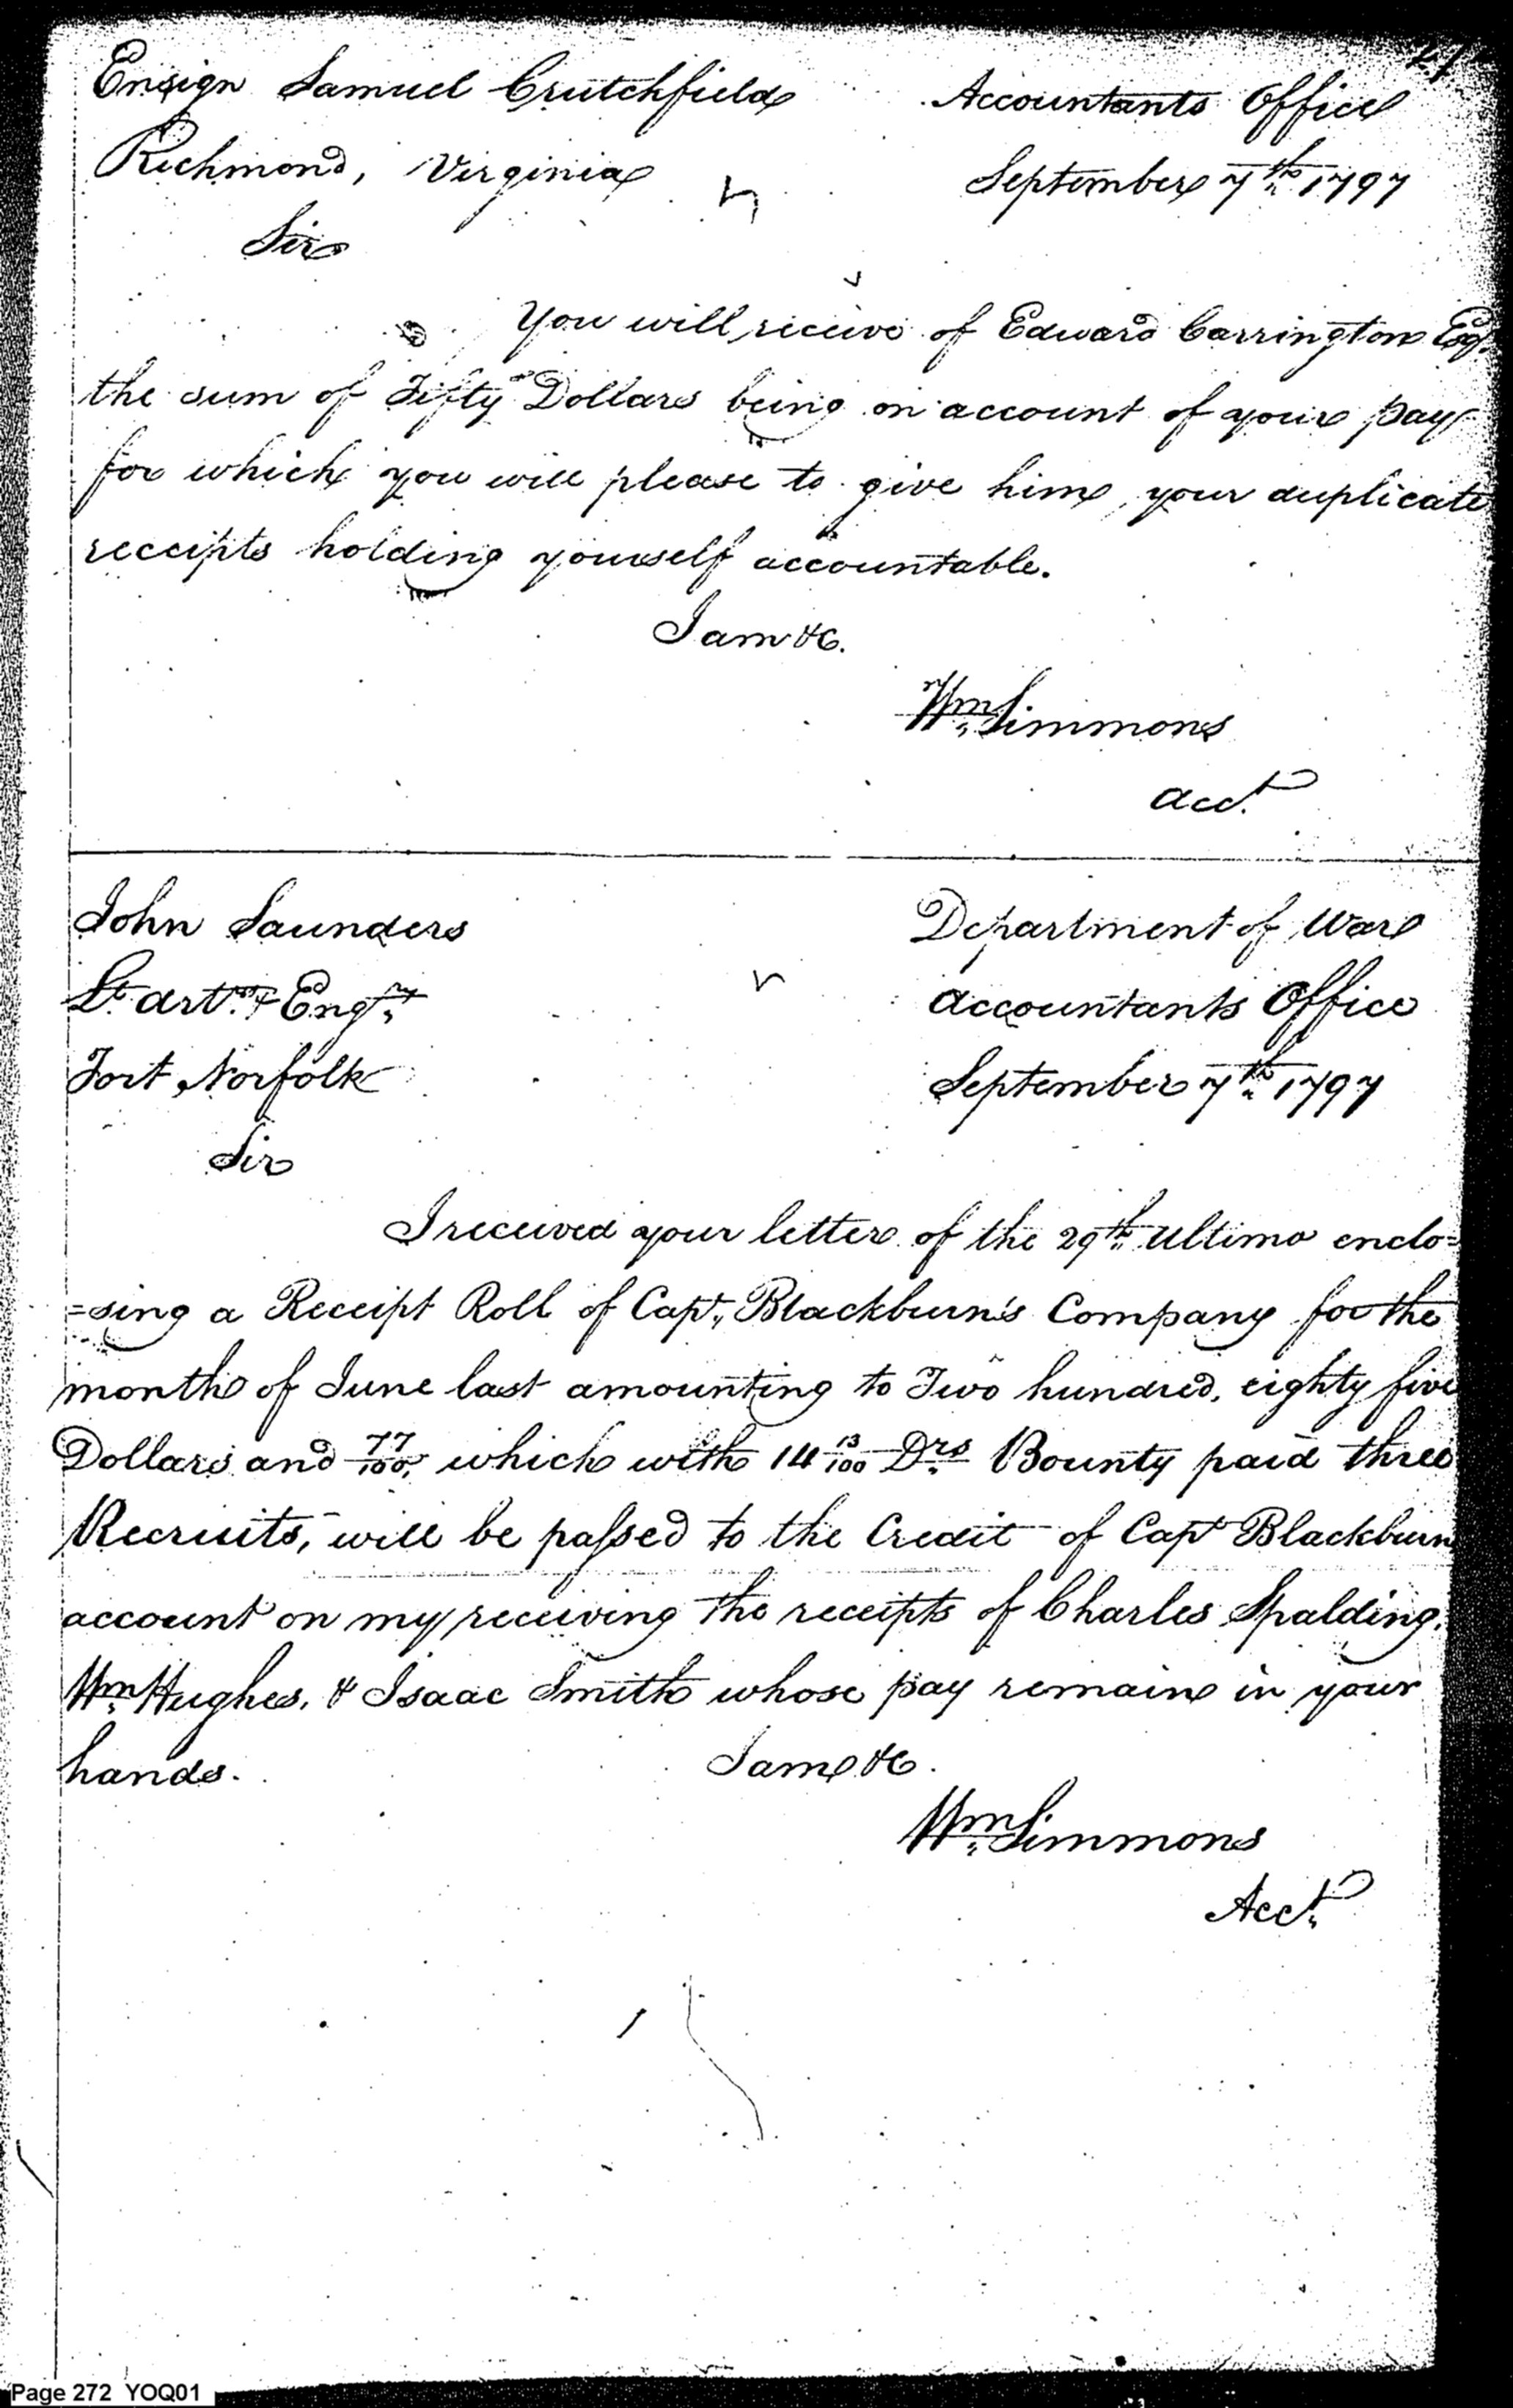 Ensign Samuel Crutchfield Accountants Office
Richmond, Virginia September 7th 1797
Sir
You will receive of Edward Carrington Esqr.
the sum of Fifty Dollars being on account of your pay
for which you will please to give him your duplicate
receipts holding yourself accountable.
I am &c.
Wm Simmons
Acct.
John Saunders Department of War
Lt. Arts. & Engrs. Accountants Office
Fort Norfolk September 7th 1797
Sir
I received your letter of the 29th Ultimo enclo=
=sing a Receipt Roll of Capt. Blackburn's Company for the
month of June last amounting to Two hundred, eighty five
Dollars and 77/100, which with 14 13/100 Drs Bounty paid three
Recruits, will be passed to the Credit of Capt Blackburn
account on my receiving the receipts of Charles Spalding,
Wm Hughes, & Isaac Smith whose pay remain in your
hands. I am &c.
Wm Simmons
Acct.
Page 272 YOQ01